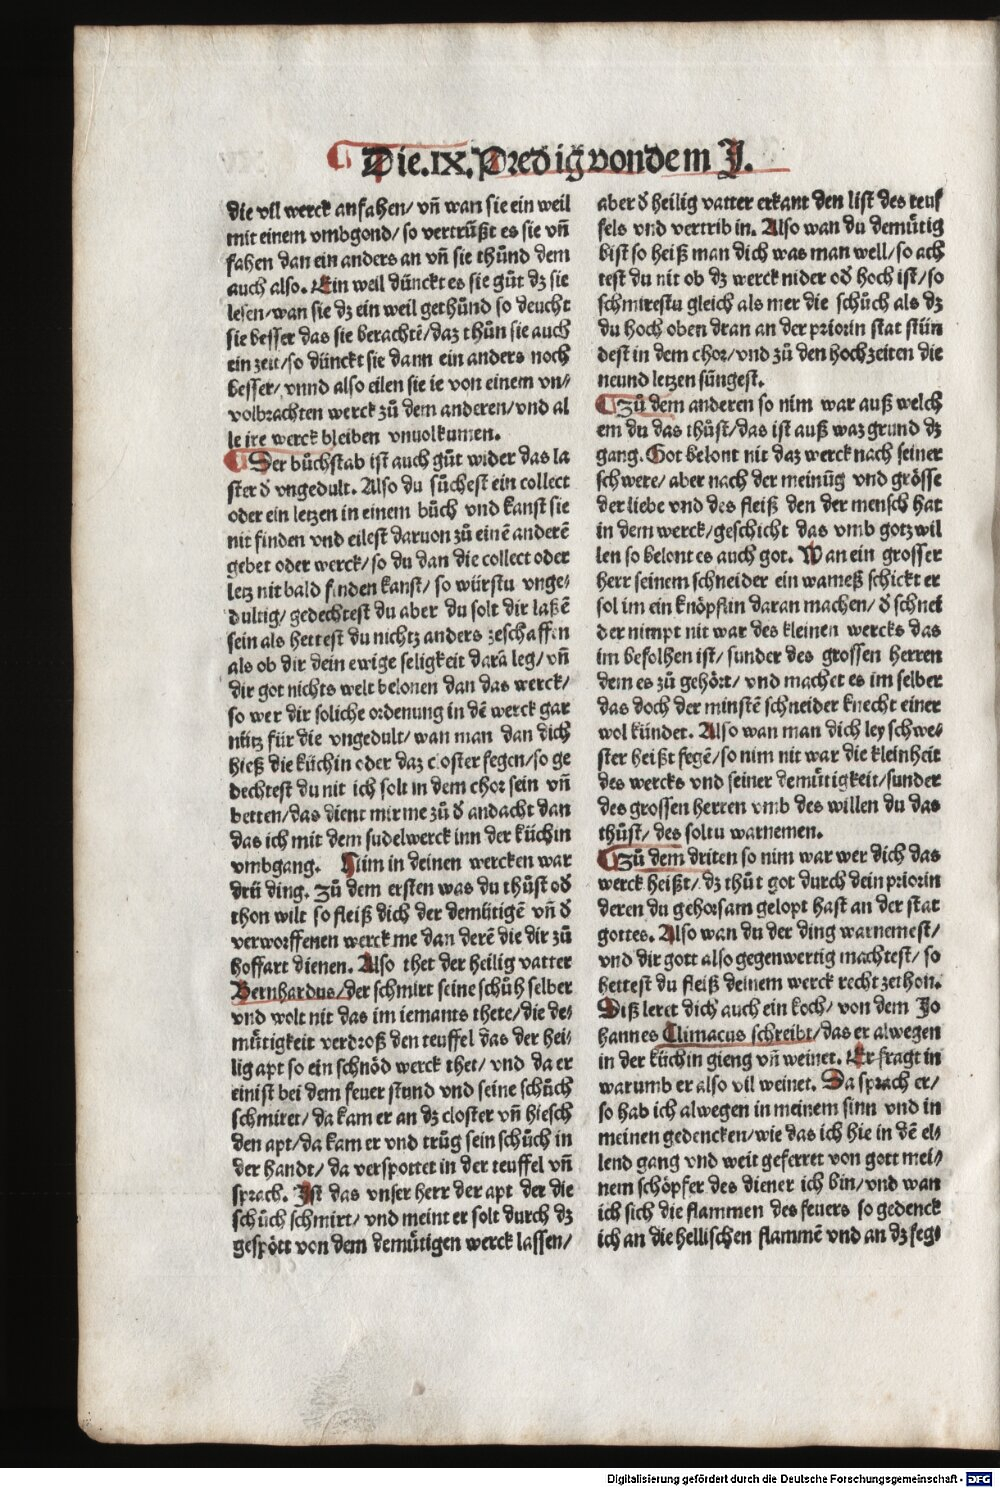 Die.IX.Predig von dem J.
die vil werck anfahen/ vñ wan sie ein weil
mit einem vmbgond/ so vertrüßt es sie vñ
fahen dan ein anders an vñ sie thůnd dem
auch also. Ein weil dünckt es sie gůt dz sie
lesen/ wan sie dz ein weil gethůnd so deucht
sie besser das sie berachtē/ daz thůn sie auch
ein zeit/ so dünckt sie dann ein anders noch
besser/ vnnd also eilen sie ie von einem vn/
volbrachten werck zů dem anderen/ vnd al
le ire werck bleiben vnuolkumen.
Der bůchstab ist auch gůt wider das la
ster ð vngedult. Also du sůchest ein collect
oder ein letzen in einem bůch vnd kanst sie
nit finden vnd eilest daruon zů einē anderē
gebet oder werck/ so du dan die collect oder
letz nit bald finden kanst/ so würstu vnge/
dultig/ gedechtest du aber du solt dir laßē
sein als hettest du nichtz anders zeschaffen
als ob dir dein ewige seligkeit darā leg/ vñ
dir got nichts welt belonen dan das werck/
so wer dir soliche ordenung in dē werck gar
nütz für die vngedult/ wan man dan dich
hieß die küchin oder daz closter fegen/ so ge
dechtest du nit ich solt in dem chor sein vñ
betten/ das dient mir me zů ð andacht dan
das ich mit dem sudelwerck inn der küchin
vmbgang. Nim in deinen wercken war
drü ding. Zů dem ersten was du thůst oð
thon wilt so fleiß dich der demütigē vñ ð
verworffenen werck me dan derē die dir zů
hoffart dienen. Also thet der heilig vatter
Bernhardus/ der schmirt seine schůh selber
vnd wolt nit das im iemants thete/ die de/
mütigkeit verdroß den teuffel das der hei/
lig apt so ein schnöd werck thet/ vnd da er
einist bei dem feuer stund vnd seine schůch
schmiret/ da kam er an dz closter vñ hiesch
den apt/ da kam er vnd trůg sein schůch in
der handt/ da verspottet in der teuffel vñ
sprach. Ist das vnser herr der apt der die
schůch schmirt/ vnd meint er solt durch dz
gespött von dem demütigen werck lassen/
aber ð heilig vatter erkant den list des teuf
fels vnd vertrib in. Also wan du demütig
bist so heiß man dich was man well/ so ach
test du nit ob dz werck nider oð hoch ist/ so
schmirestu gleich als mer die schůch als dz
du hoch oben dran an der priorin stat stün
dest in dem chor/ vnd zů den hochzeiten die
neund letzen süngest.
Zů dem anderen so nim war auß welch
em du das thůst/ das ist auß waz grund dz
gang. Got belont nit daz werck nach seiner
schwere/ aber nach der meinūg vnd grösse
der liebe vnd des fleiß den der mensch hat
in dem werck/ geschicht das vmb gotz wil
len so belont es auch got. Wan ein grosser
herr seinem schneider ein wameß schickt er
sol im ein knöpflin daran machen/ ð schnei
der nimpt nit war des kleinen wercks das
im befolhen ist/ sunder des grossen herren
dem es zů gehört/ vnd machet es im selber
das doch der minstē schneider knecht einer
wol kündet. Also wan man dich ley schwe/
ster heißt fegē/ so nim nit war die kleinheit
des wercks vnd seiner demütigkeit/ sunder
des grossen herren vmb des willen du das
thůst/ des soltu warnemen.
Zů dem driten so nim war wer dich das
werck heißt/ dz thůt got durch dein priorin
deren du gehorsam gelopt hast an der stat
gottes. Also wan du der ding warnemest/
vnd dir gott also gegenwertig machtest/ so
hettest du fleiß deinem werck recht zethon.
Diß leret dich auch ein koch/ von dem Jo
hannes Climacus schreibt/ das er alwegen
in der küchin gieng vñ weinet. Er fragt in
warumb er also vil weinet. Da sprach er/
so hab ich alwegen in meinem sinn vnd in
meinen gedencken/ wie das ich hie in dē el/
lend gang vnd weit geferret von gott mei/
nem schöpfer des diener ich bin/ vnd wan
ich sich die flammen des feuers so gedenck
ich an die hellischen flammē vnd an dz feg/
Digitalisierung gefördert durch die Deutsche Forschungsgemeinschaft - DFG